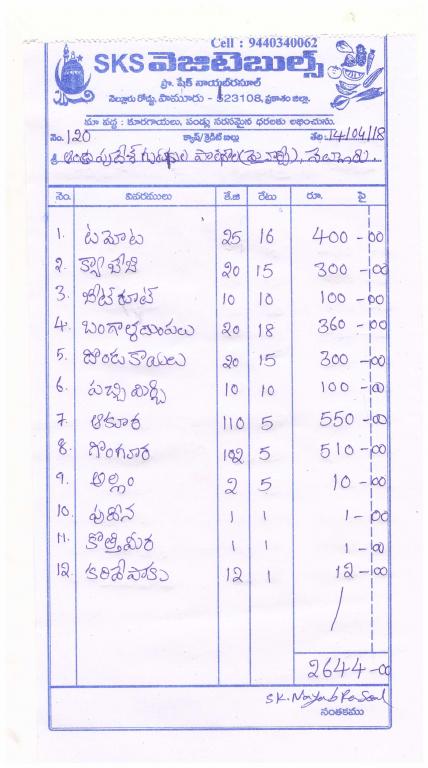 Cell : 9440340062
SKS వెజిటెబుల్స్
ప్రొ. షేక్ నాయబ్‌రసూల్
నెల్లూరు రోడ్డు, పామూరు - 523108, ప్రకాశం జిల్లా.
మా వద్ద : కూరగాయలు, పండ్లు సరసమైన ధరలకు లభించును.
నెం. 120 క్యాష్/క్రెడిట్ బిల్లు తేది: 14/04/18
శ్రీ ఆంధ్రప్రదేశ్ గురుకుల పాఠశాల
నెం. వివరములు కే.జి రేటు రూ. పై
1. టమోట 25 16 400-00
2. క్యాబేజి 20 15 300-00
3. బీట్‌రూట్ 10 10 100-00
4. బంగాళదుంపలు 20 18 360-00
5. దొండకాయలు 20 15 300-00
6. పచ్చిమిర్చి 10 10 100-00
7. ఆకుకూర 110 5 550-00
8. గొంగూర 102 5 510-00
9. అల్లం 2 5 10-00
10. పుదిన 1 1 1-00
11. కొత్తిమీర 1 1 1-00
12. కరివేపాకు 12 1 12-00
2644-00
SK. Nayab Rasool
సంతకము